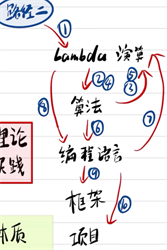 路径二
①
lambda 演算
② ④ ③ ⑤
算法
⑧ ⑥ ⑦
理论
编程语言
实践
⑨
框架 ⑩
本质
项目